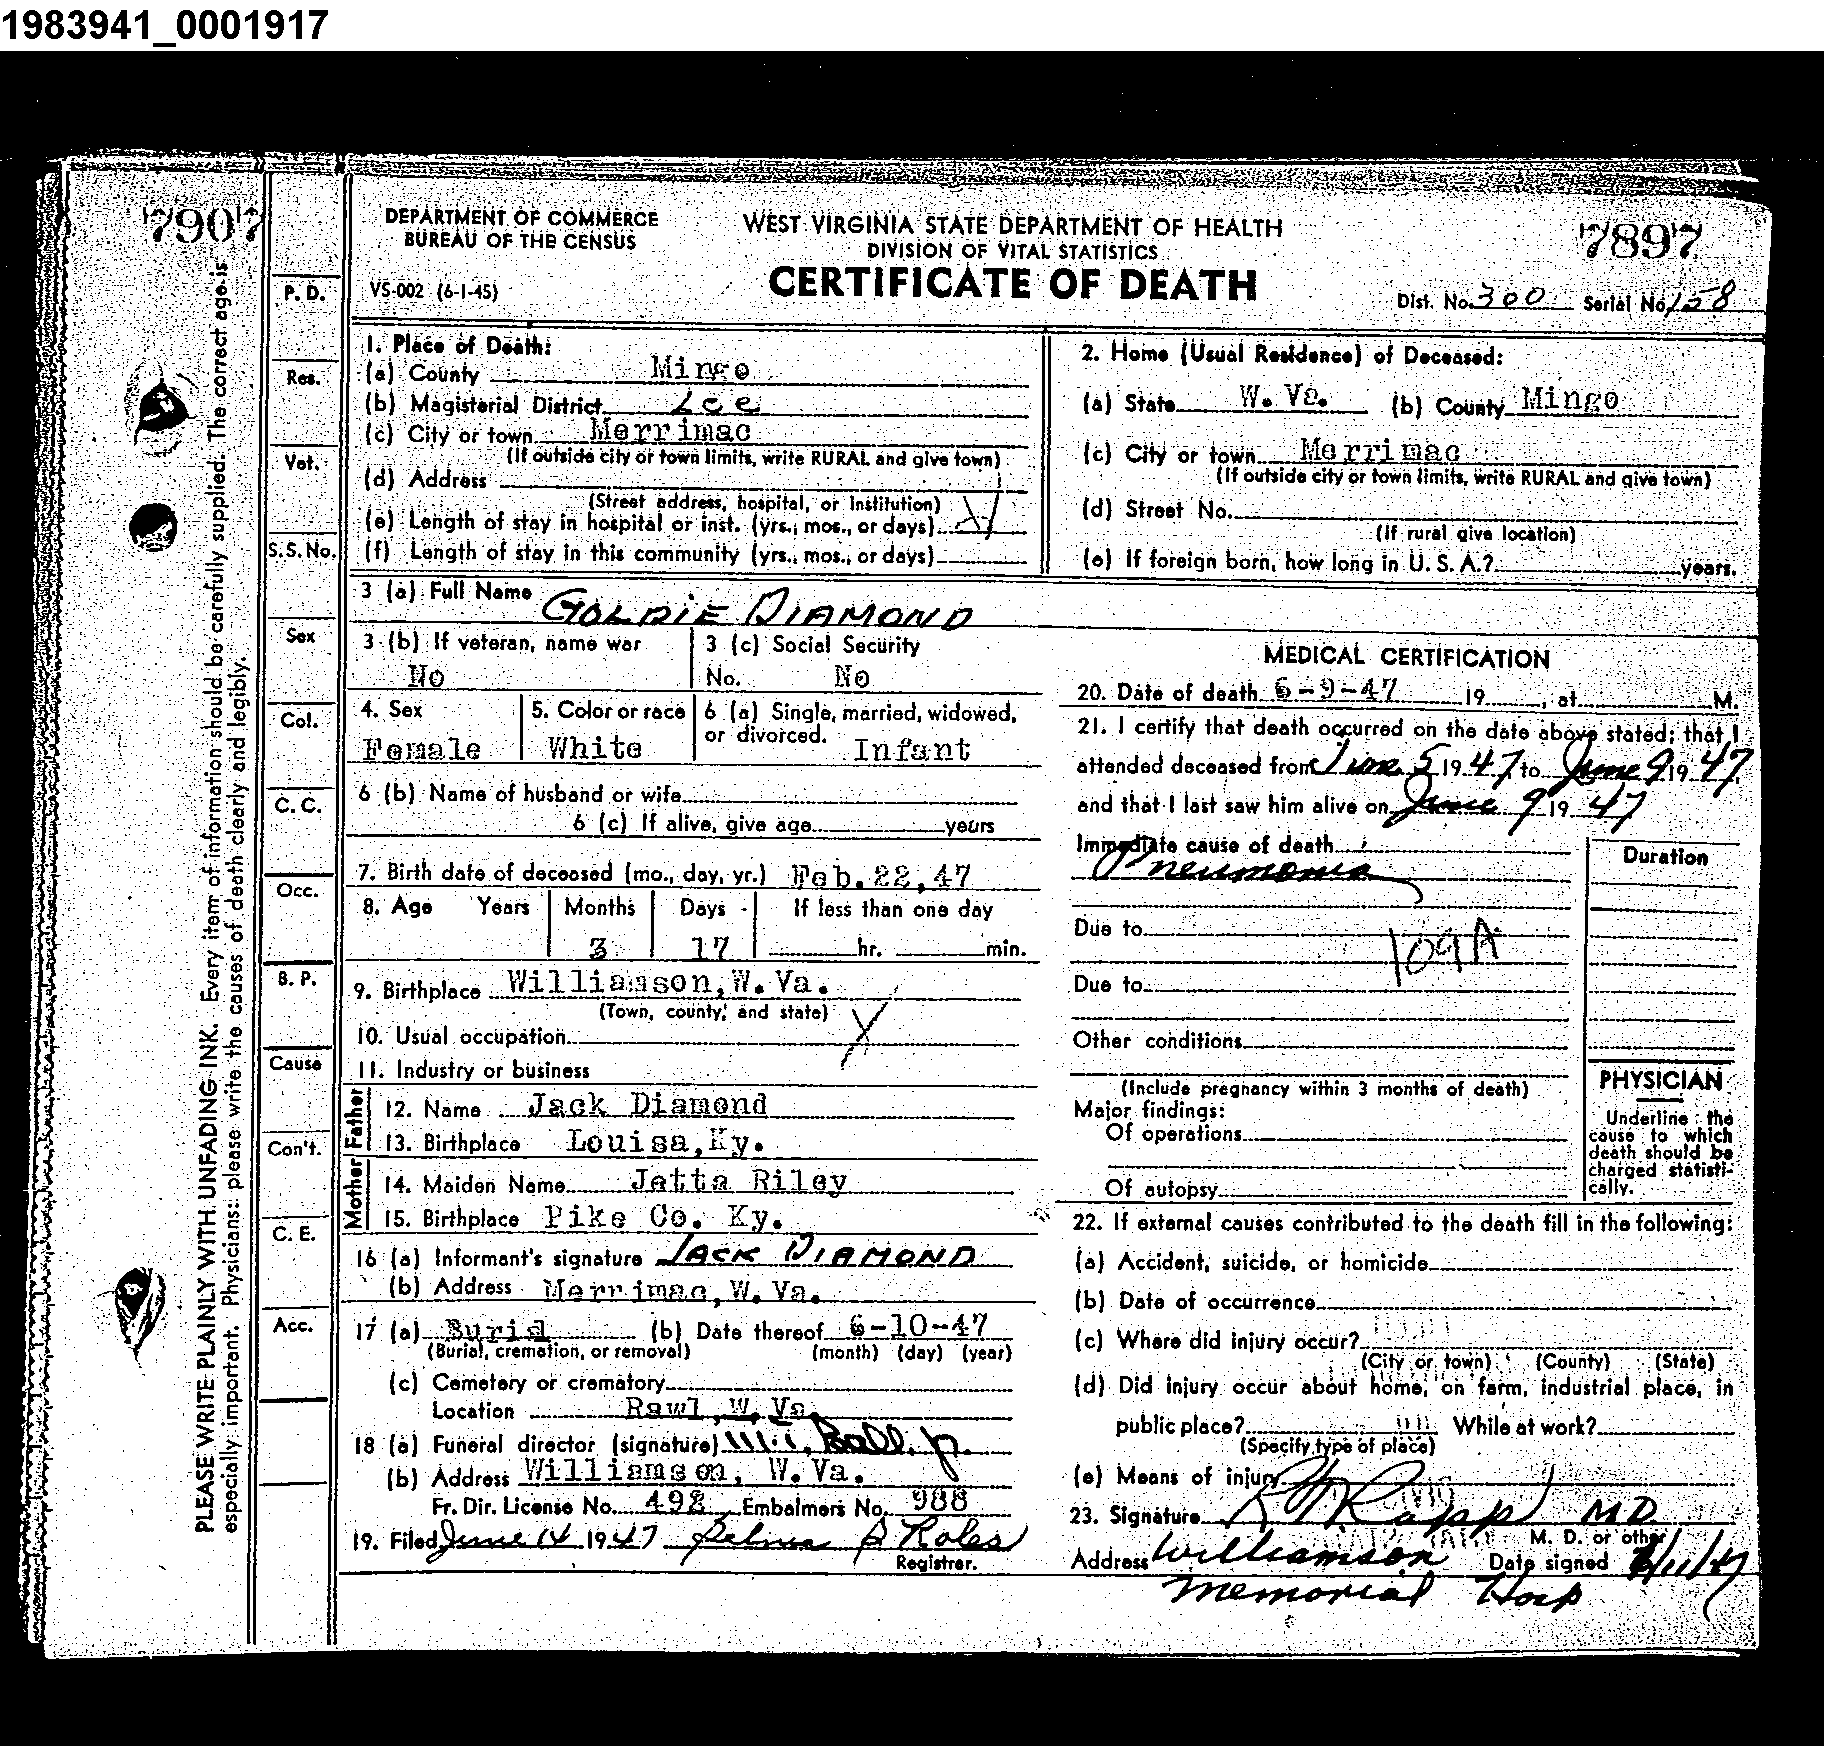 1983941_0001917
7907
7897
DEPARTMENT OF COMMERCE
BUREAU OF THE CENSUS
VS-002 (6-1-45)
WEST VIRGINIA STATE DEPARTMENT OF HEALTH
DIVISION OF VITAL STATISTICS
CERTIFICATE OF DEATH
Dist. No. 300 Serial No. 158
PLEASE WRITE PLAINLY WITH UNFADING INK. Every item of information should be carefully supplied. The correct age is
especially important. Physicians: please write the causes of death clearly and legibly.
P. D.
Res.
Vet.
S.S. No.
Sex
Col.
C. C.
Occ.
B. P.
Cause
Con't.
C. E.
Acc.
1. Place of Death:
(a) County Mingo
(b) Magisterial District Lee
(c) City or town Merrimac
(If outside city or town limits, write RURAL and give town)
(d) Address
(Street address, hospital, or institution)
(e) Length of stay in hospital or inst. (yrs., mos., or days)
(f) Length of stay in this community (yrs., mos., or days)
2. Home (Usual Residence) of Deceased:
(a) State W. Va. (b) County Mingo
(c) City or town Merrimac
(If outside city or town limits, write RURAL and give town)
(d) Street No.
(If rural give location)
(e) If foreign born, how long in U. S. A.? years.
3 (a) Full Name GOLDIE DIAMOND
3 (b) If veteran, name war
No
3 (c) Social Security
No. No
4. Sex
Female
5. Color or race
White
6 (a) Single, married, widowed,
or divorced. Infant
6 (b) Name of husband or wife
6 (c) If alive, give age years
7. Birth date of deceased (mo., day, yr.) Feb. 22, 47
8. Age Years Months Days If less than one day
3 17 hr. min.
9. Birthplace Williamson, W. Va.
(Town, county, and state)
10. Usual occupation X
11. Industry or business
Father
12. Name Jack Diamond
13. Birthplace Louisa, Ky.
Mother
14. Maiden Name Jetta Riley
15. Birthplace Pike Co. Ky.
16 (a) Informant's signature JACK DIAMOND
(b) Address Merrimac, W. Va.
17 (a) Burial (b) Date thereof 6-10-47
(Burial, cremation, or removal) (month) (day) (year)
(c) Cemetery or crematory
Location Rawl, W. Va.
18 (a) Funeral director (signature) Ball, Jr.
(b) Address Williamson, W. Va.
Fr. Dir. License No. 492 Embalmers No. 988
19. Filed June 14 1947 B Roles
Registrar.
MEDICAL CERTIFICATION
20. Date of death 6-9-47 19 , at M.
21. I certify that death occurred on the date above stated; that I
attended deceased from June 5 1947 to June 9 1947
and that I last saw him alive on June 9 1947
Immediate cause of death
Pneumonia
Duration
Due to
109A
Due to
Other conditions
(Include pregnancy within 3 months of death)
Major findings:
Of operations
Of autopsy
PHYSICIAN
Underline the
cause to which
death should be
charged statisti-
cally.
22. If external causes contributed to the death fill in the following:
(a) Accident, suicide, or homicide
(b) Date of occurrence
(c) Where did injury occur?
(City or town) (County) (State)
(d) Did injury occur about home, on farm, industrial place, in
public place? While at work?
(Specify type of place)
(e) Means of injury
23. Signature Rapp M D
M. D. or other
Address Williamson Date signed 6/11/47
Memorial Hosp